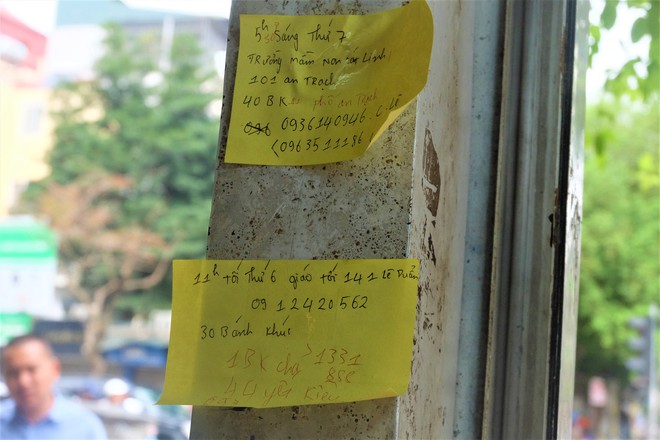 5h sáng Thứ 7
Trường Mầm Non Linh
101 an Trạch
40 BK phố an Trạch
0936140946
(096351118
11h tối thứ 6 giao tới 141 Lê Duẩn
0912420562
30 Bánh khúc
1BK chợ 1331
40 yến kiêu